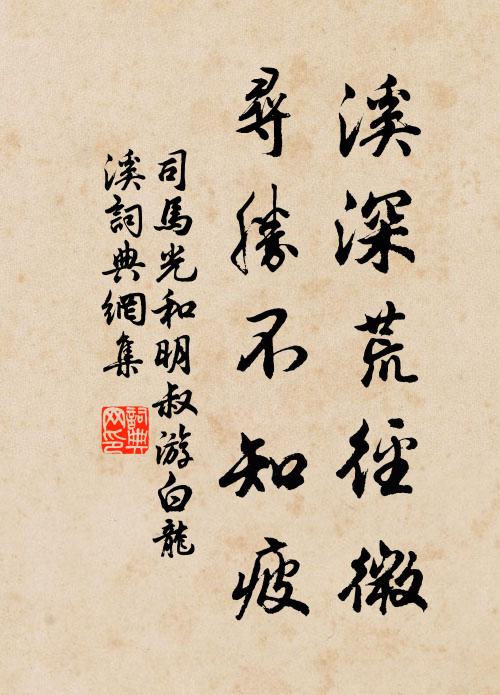 溪深荒徑微
尋勝不知疲
司馬光和明叔游白龍
溪詞典網集
詞典
网印